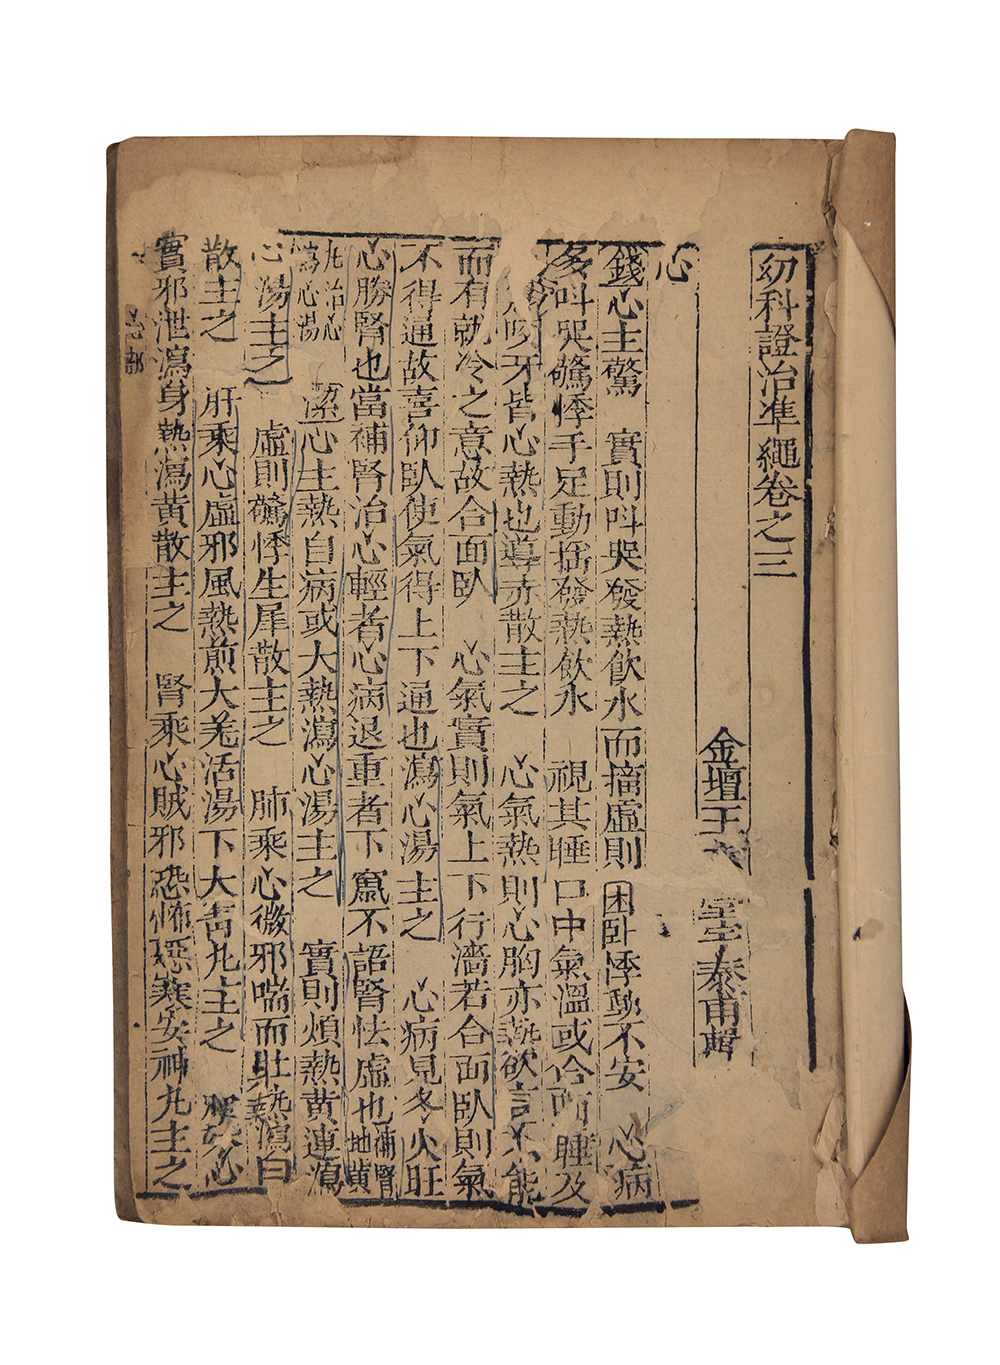 幼科證治準繩卷之三
金壇王 宇泰甫輯
心
錢心主驚 實則叫哭發熱飲水而搐虛則困卧悸動不安 心病
多叫哭驚悸手足動搖發熱飲水 視其睡口中氣溫或合面睡及
咬牙皆心熱也導赤散主之 心氣熱則心胸亦熱欲言不能
而有就冷之意故合面臥 心氣實則氣上下行濇若合面臥則氣
不得通故喜仰臥使氣得上下通也瀉心湯主之 心病見冬火旺
心勝腎也當補腎治心輕者心病退重者下竄不語腎怯虛也補腎地黄
丸治心瀉心湯 潔心主熱自病或大熱瀉心湯主之 實則煩熱黄連瀉
心湯主之 虛則驚悸生犀散主之 肺乘心微邪喘而壯熱瀉白
散主之 肝乘心虛邪風熱煎大羌活湯下大青丸主之 脾乘心
實邪泄瀉身熱瀉黄散主之 腎乘心賊邪恐怖惡寒安神丸主之
心部